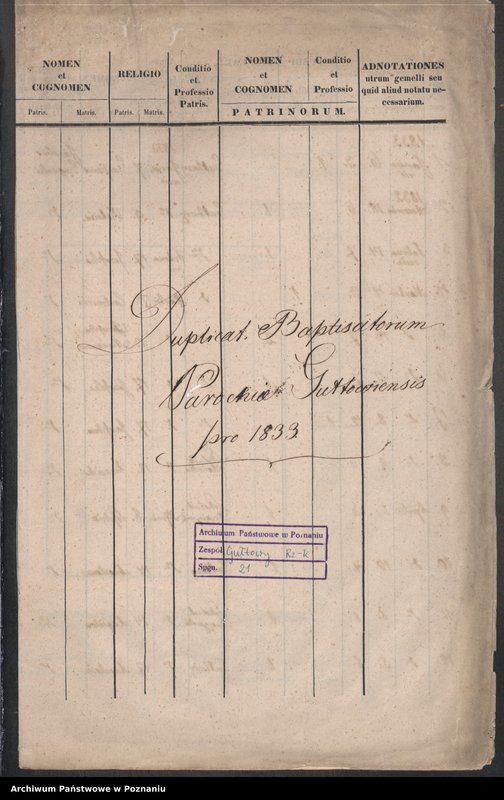 NOMEN
et
COGNOMEN
Patris.
Matris.
RELIGIO
Patris.
Matris.
Conditio
et.
Professio
Patris.
NOMEN
et
COGNOMEN
Conditio
et
Professio
PATRINORUM.
ADNOTATIONES
utrum gemelli seu
quid aliud notatu ne-
cessarium.
Duplicat. Baptisatorum
Parochiae Guttowiensis
pro 1833.
Archiwum Państwowe w Poznaniu
Zespół Gułtowy Rz-k
Sygn. 21
Archiwum Państwowe w Poznaniu